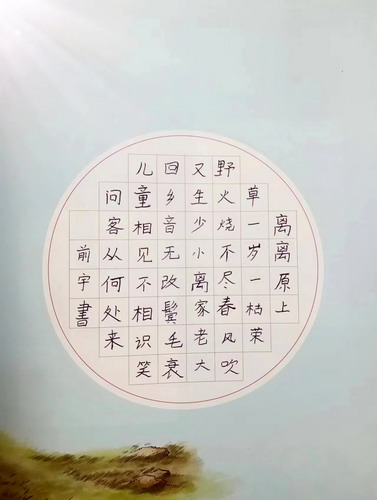 离离原上
草一岁一枯荣
野火烧不尽春风吹
又生少小离家老大
回乡音无改鬓毛衰
儿童相见不相识笑
问客从何处来
前宇書